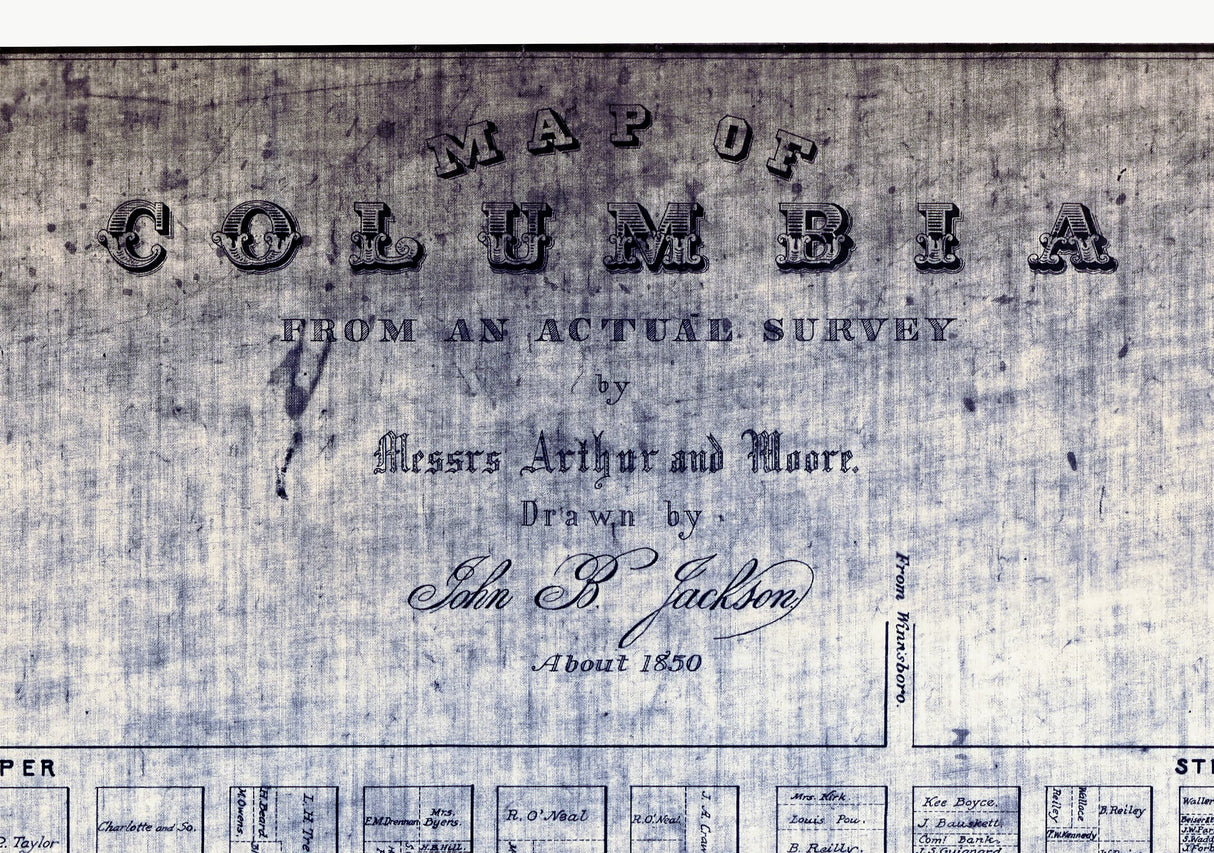 MAP OF
COLUMBIA
FROM AN ACTUAL SURVEY
by
Messrs Arthur and Moore.
Drawn by
John B. Jackson
About 1850
From Winnsboro.
PER
ST
Taylor
Charlotte and So.
M. Owens.
H. Beard
L. H.
E.M. Drennan
Mrs. Byers.
H.B. Hill.
R. O'Neal
R. O'Neal
J. A.
Mrs. Kirk.
Louis Pou.
B. Reilly.
Kee Boyce.
J. Bauskett
Coml. Bank,
J.S. Guignard
Reiley
Wallace
B. Reiley
T.W. Kennedy
Waller